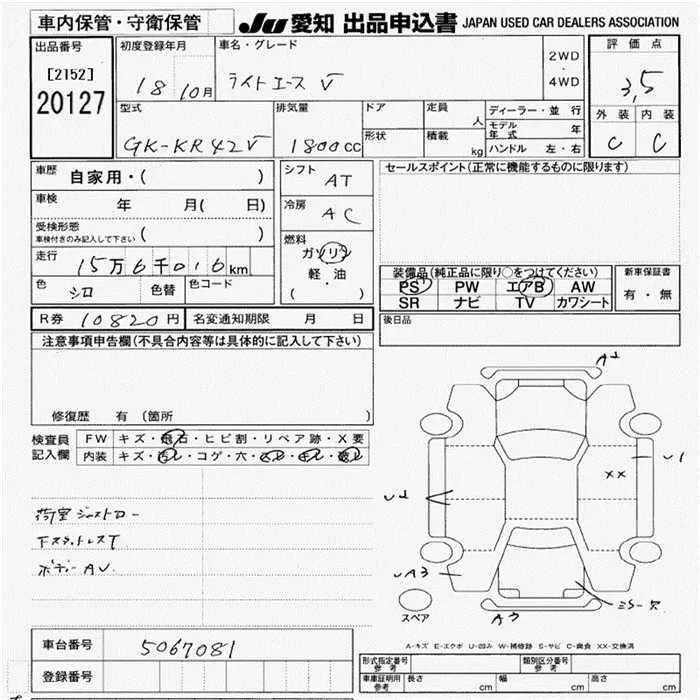 車内保管・守衛保管 JU 愛知 出品申込書 JAPAN USED CAR DEALERS ASSOCIATION
出品番号 初度登録年月 車名・グレード 2WD・4WD 評価点
[2152] 20127 18 10月 ライトエース V 3,5
型式 排気量 ドア 定員 人 ディーラー・並行 外装 内装
GK-KR42V 1800cc 形状 積載 kg モデル年式 年 C C
ハンドル 左・右
車歴 自家用・( ) シフト AT セールスポイント(正常に機能するものに限ります)
車検 年 月( 日) 冷房 AC
受検形態 車検付きのみ記入して下さい ( )
燃料 ガソリン
軽・油
( ・ )
走行 15万6千016km
色 シロ 色替 色コード
装備品(純正品に限り○をつけてください) 新車保証書
PS PW エアB AW 有・無
SR ナビ TV カワシート
R券 10820円 名変通知期限 月 日 後日品
注意事項申告欄(不具合内容等は具体的に記入して下さい)
修復歴 有(箇所 )
検査員記入欄 FW キズ・飛石・ヒビ割・リペア跡・X要
内装 キズ・
コゲ・穴・
A1
U1
XX
U1
UA3
A3
スペア
A-キズ E-エクボ U-凹み W-補修跡 S-サビ C-腐食 XX-交換済
車台番号 5067081
登録番号
形式指定番号 参考 類別区分番号 参考
車庫証明用 参考 長さ cm 幅 cm 高さ cm